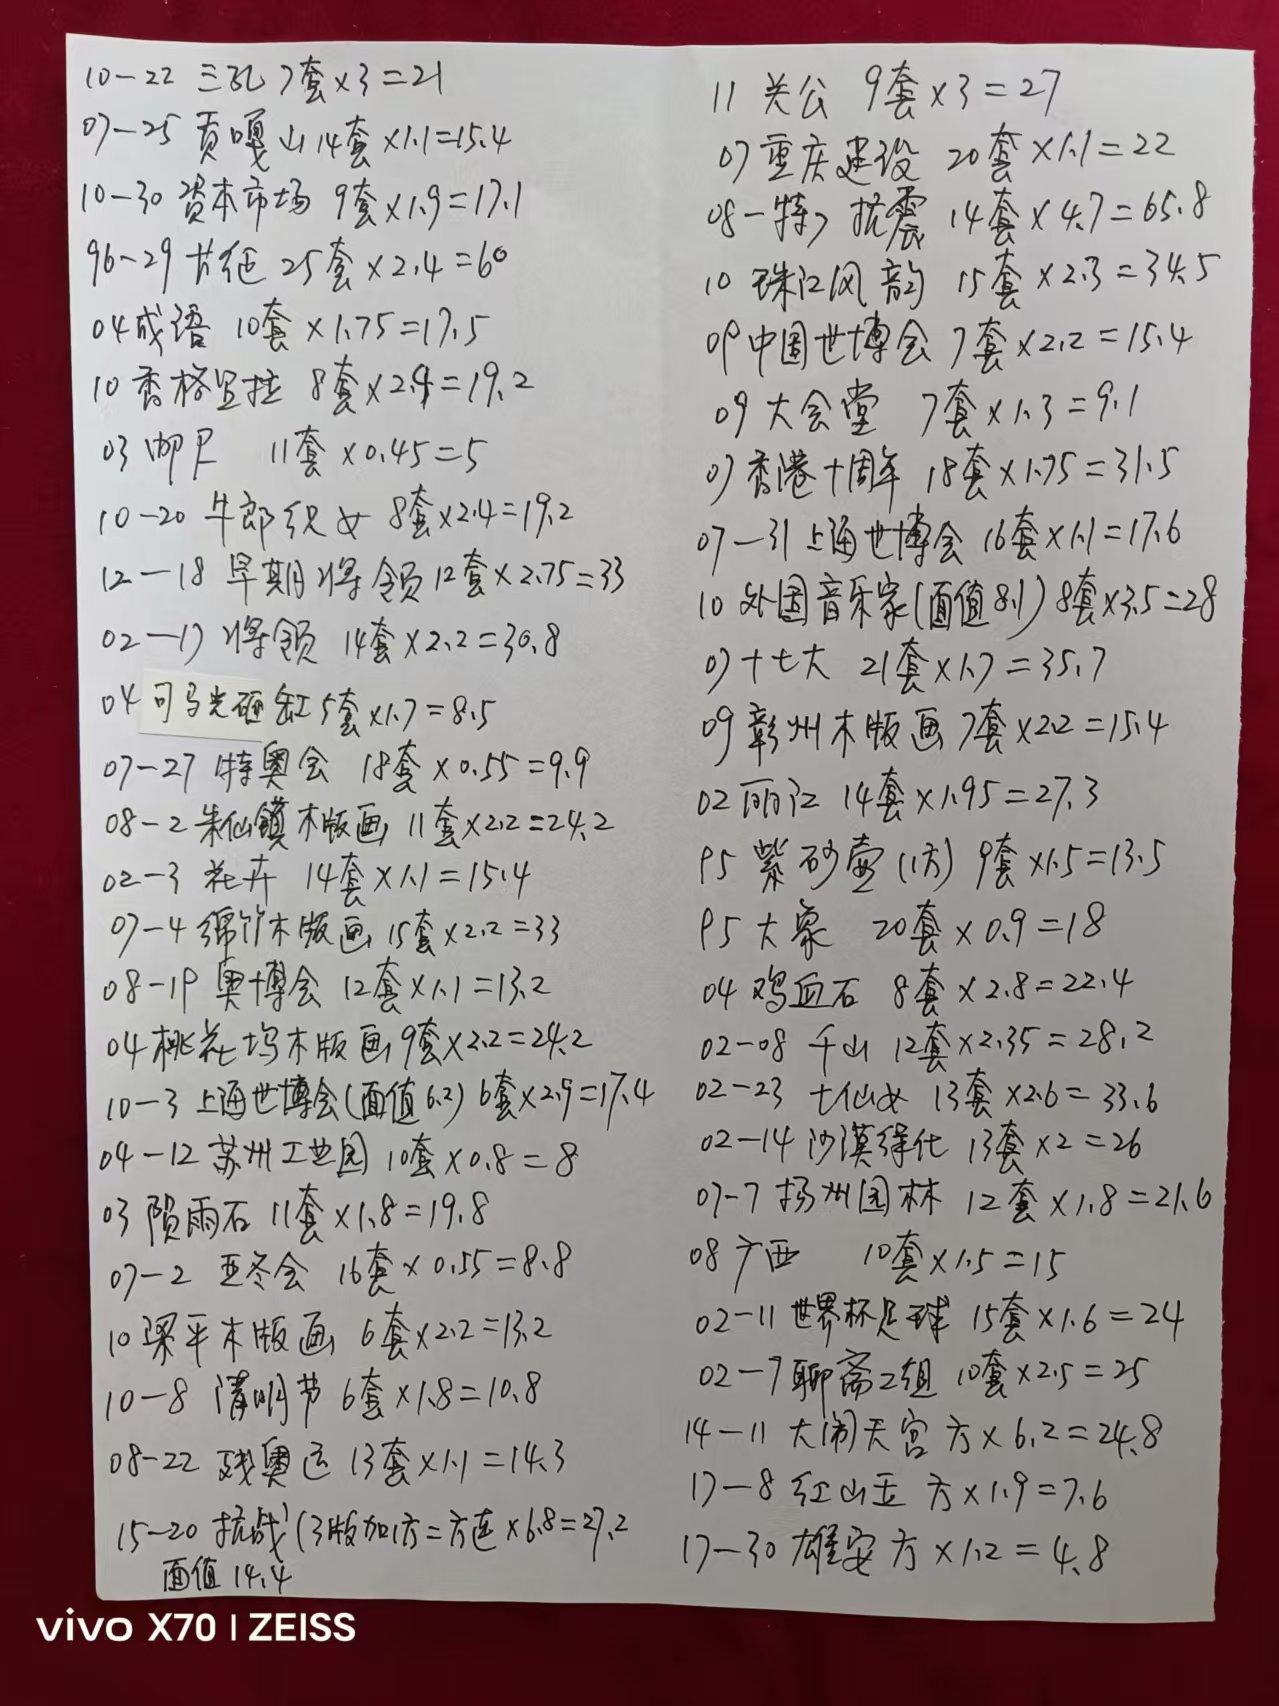 10-22 三孔 7套×3=21
07-25 贡嘎山 14套×1.1=15.4
10-30 资本市场 9套×1.9=17.1
96-29 长征 25套×2.4=60
04成语 10套×1.75=17.5
10 香格里拉 8套×2.4=19.2
03 11套×0.45=5
10-20 牛郎织女 8套×2.4=19.2
12-18 早期将领 12套×2.75=33
02-17 将领 14套×2.2=30.8
04 司马光砸缸 5套×1.7=8.5
07-27 特奥会 18套×0.55=9.9
08-2 朱仙镇木版画 11套×2.2=24.2
02-3 花卉 14套×1.1=15.4
07-4 绵竹木版画 15套×2.2=33
08-19 奥博会 12套×1.1=13.2
04桃花坞木版画 9套×2.2=24.2
10-3 上海世博会(面值6.2) 6套×2.9=17.4
04-12 苏州工业园 10套×0.8=8
03 陨雨石 11套×1.8=19.8
07-2 亚冬会 16套×0.55=8.8
10梁平木版画 6套×2.2=13.2
10-8 清明节 6套×1.8=10.8
08-22 残奥运 13套×1.1=14.3
15-20 抗战(3版加1方=方连×6.8=27.2
面值14.4
11 关公 9套×3=27
07重庆建设 20套×1.1=22
08-特7 抗震 14套×4.7=65.8
10 珠江风韵 15套×2.3=34.5
09中国世博会 7套×2.2=15.4
09 大会堂 7套×1.3=9.1
07香港十周年 18套×1.75=31.5
07-31上海世博会 16套×1.1=17.6
10 外国音乐家(面值8.1) 8套×3.5=28
07十七大 21套×1.7=35.7
09 彰州木版画 7套×2.2=15.4
02丽江 14套×1.95=27.3
95 紫砂壶(1方) 9套×1.5=13.5
95大象 20套×0.9=18
04 鸡血石 8套×2.8=22.4
02-08 千山 12套×2.35=28.2
02-23 七仙女 13套×2.6=33.6
02-14沙漠绿化 13套×2=26
07-7扬州园林 12套×1.8=21.6
08广西 10套×1.5=15
02-11世界杯足球 15套×1.6=24
02-7聊斋2组 10套×2.5=25
14-11 大闹天宫 方×6.2=24.8
17-8 红山玉 方×1.9=7.6
17-30 雄安 方×1.2=4.8
vivo X70 | ZEISS